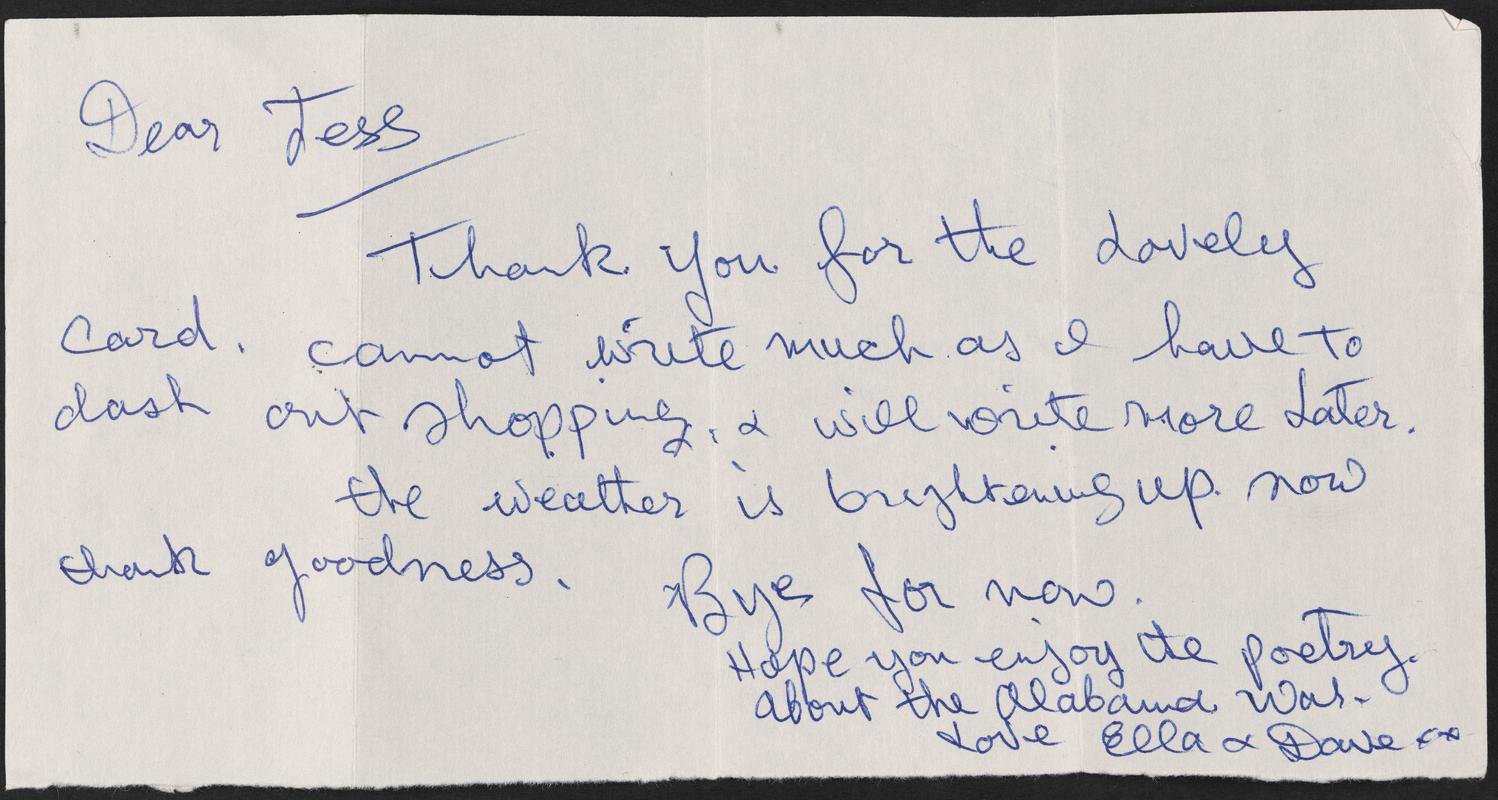 Dear Jess
Thank you for the Lovely
Card. cannot write much as I have to
dash out shopping, & will write more Later.
the weather is brightening up now
thank goodness. Bye for now.
Hope you enjoy the poetry.
About the Alabama War.
Love Ella & Dave xx